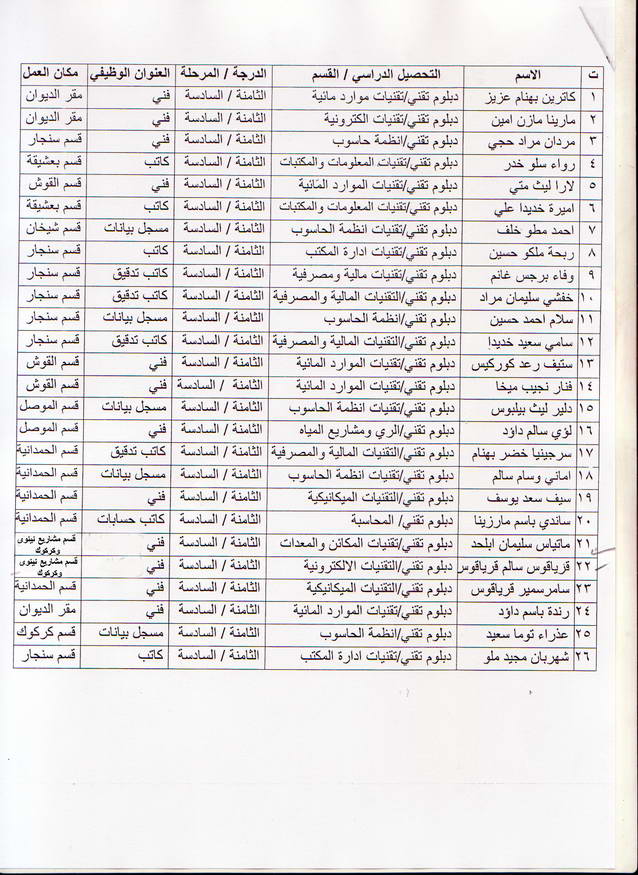 ت الاسم التحصيل الدراسي / القسم الدرجة / المرحلة العنوان الوظيفي مكان العمل
١ كاترين بهنام عزيز دبلوم تقني/تقنيات موارد مائية الثامنة / السادسة فني مقر الديوان
٢ مارينا مازن امين دبلوم تقني/تقنيات الكترونية الثامنة / السادسة فني مقر الديوان
٣ مردان مراد حجي دبلوم تقني/انظمة حاسوب الثامنة / السادسة فني قسم سنجار
٤ رواء سلو خدر دبلوم تقني/تقنيات المعلومات والمكتبات الثامنة / السادسة كاتب قسم بعشيقة
٥ لارا ليث متي دبلوم تقني/تقنيات الموارد المائية الثامنة / السادسة فني قسم القوش
٦ اميرة خديدا علي دبلوم تقني/تقنيات المعلومات والمكتبات الثامنة / السادسة كاتب قسم بعشيقة
٧ احمد مطو خلف دبلوم تقني/تقنيات انظمة الحاسوب الثامنة / السادسة مسجل بيانات قسم شيخان
٨ ربحة ملكو حسين دبلوم تقني/تقنيات ادارة المكتب الثامنة / السادسة كاتب قسم سنجار
٩ وفاء برجس غانم دبلوم تقني/تقنيات مالية ومصرفية الثامنة / السادسة كاتب تدقيق قسم سنجار
١٠ خفشي سليمان مراد دبلوم تقني/التقنيات المالية والمصرفية الثامنة / السادسة كاتب تدقيق قسم سنجار
١١ سلام احمد حسين دبلوم تقني/انظمة الحاسوب الثامنة / السادسة مسجل بيانات قسم سنجار
١٢ سامي سعيد خديدا دبلوم تقني/التقنيات المالية والمصرفية الثامنة / السادسة كاتب تدقيق قسم سنجار
١٣ ستيف رعد كوركيس دبلوم تقني/تقنيات الموارد المائية الثامنة / السادسة فني قسم القوش
١٤ فنار نجيب ميخا دبلوم تقني/تقنيات الموارد المائية الثامنة / السادسة فني قسم القوش
١٥ دلير ليث بيلبوس دبلوم تقني/تقنيات انظمة الحاسوب الثامنة / السادسة مسجل بيانات قسم الموصل
١٦ لؤي سالم داؤد دبلوم تقني/الري ومشاريع المياه الثامنة / السادسة فني قسم الموصل
١٧ سرجينيا خضر بهنام دبلوم تقني/التقنيات المالية والمصرفية الثامنة / السادسة كاتب تدقيق قسم الحمدانية
١٨ اماني وسام سالم دبلوم تقني/تقنيات انظمة الحاسوب الثامنة / السادسة مسجل بيانات قسم الحمدانية
١٩ سيف سعد يوسف دبلوم تقني/التقنيات الميكانيكية الثامنة / السادسة فني قسم الحمدانية
٢٠ ساندي باسم مارزينا دبلوم تقني/ المحاسبة الثامنة / السادسة كاتب حسابات قسم الحمدانية
٢١ ماتياس سليمان ابلحد دبلوم تقني/تقنيات المكائن والمعدات الثامنة / السادسة فني قسم مشاريع نينوى وكركوك
٢٢ قرياقوس سالم قرياقوس دبلوم تقني/التقنيات الالكترونية الثامنة / السادسة فني قسم مشاريع نينوى وكركوك
٢٣ سامرسمير قرياقوس دبلوم تقني/التقنيات الميكانيكية الثامنة / السادسة فني قسم الحمدانية
٢٤ رندة باسم داؤد دبلوم تقني/تقنيات الموارد المائية الثامنة / السادسة فني مقر الديوان
٢٥ عذراء توما سعيد دبلوم تقني/انظمة الحاسوب الثامنة / السادسة مسجل بيانات قسم كركوك
٢٦ شهربان مجيد ملو دبلوم تقني/تقنيات ادارة المكتب الثامنة / السادسة كاتب قسم سنجار